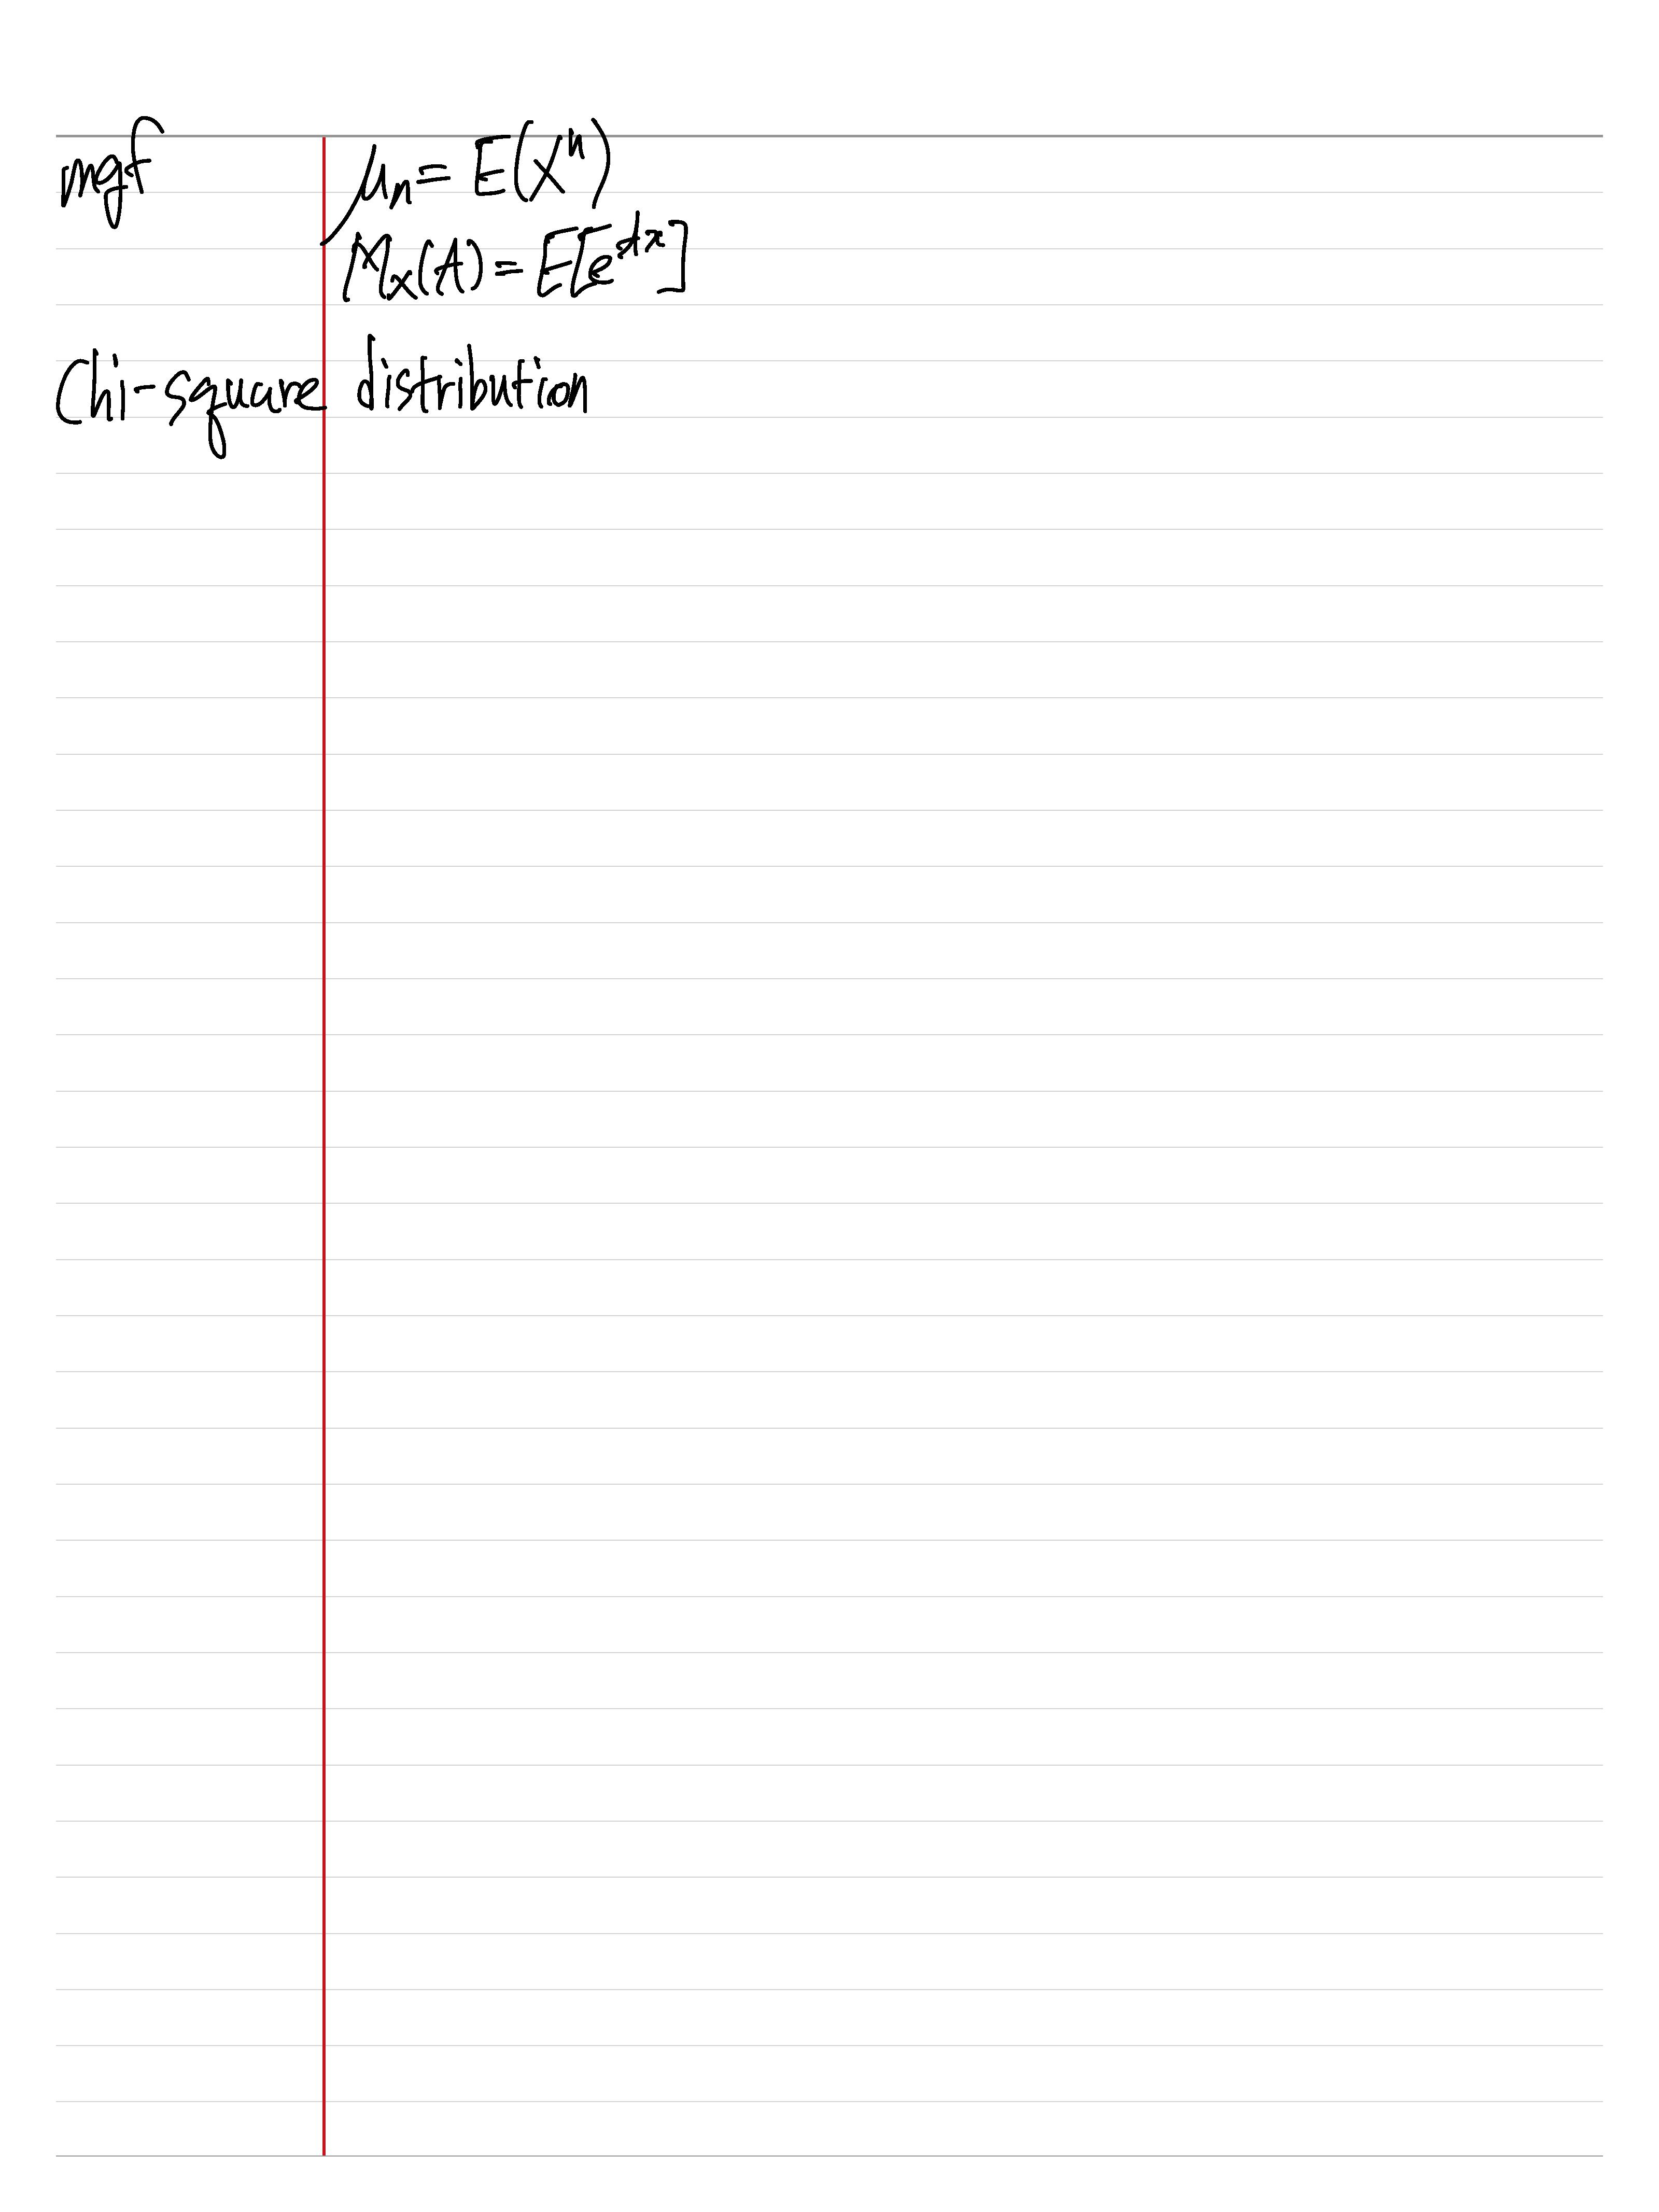 mgf μₙ = E(Xⁿ)
Mₓ(t) = E[e^{tx}]
Chi-square distribution